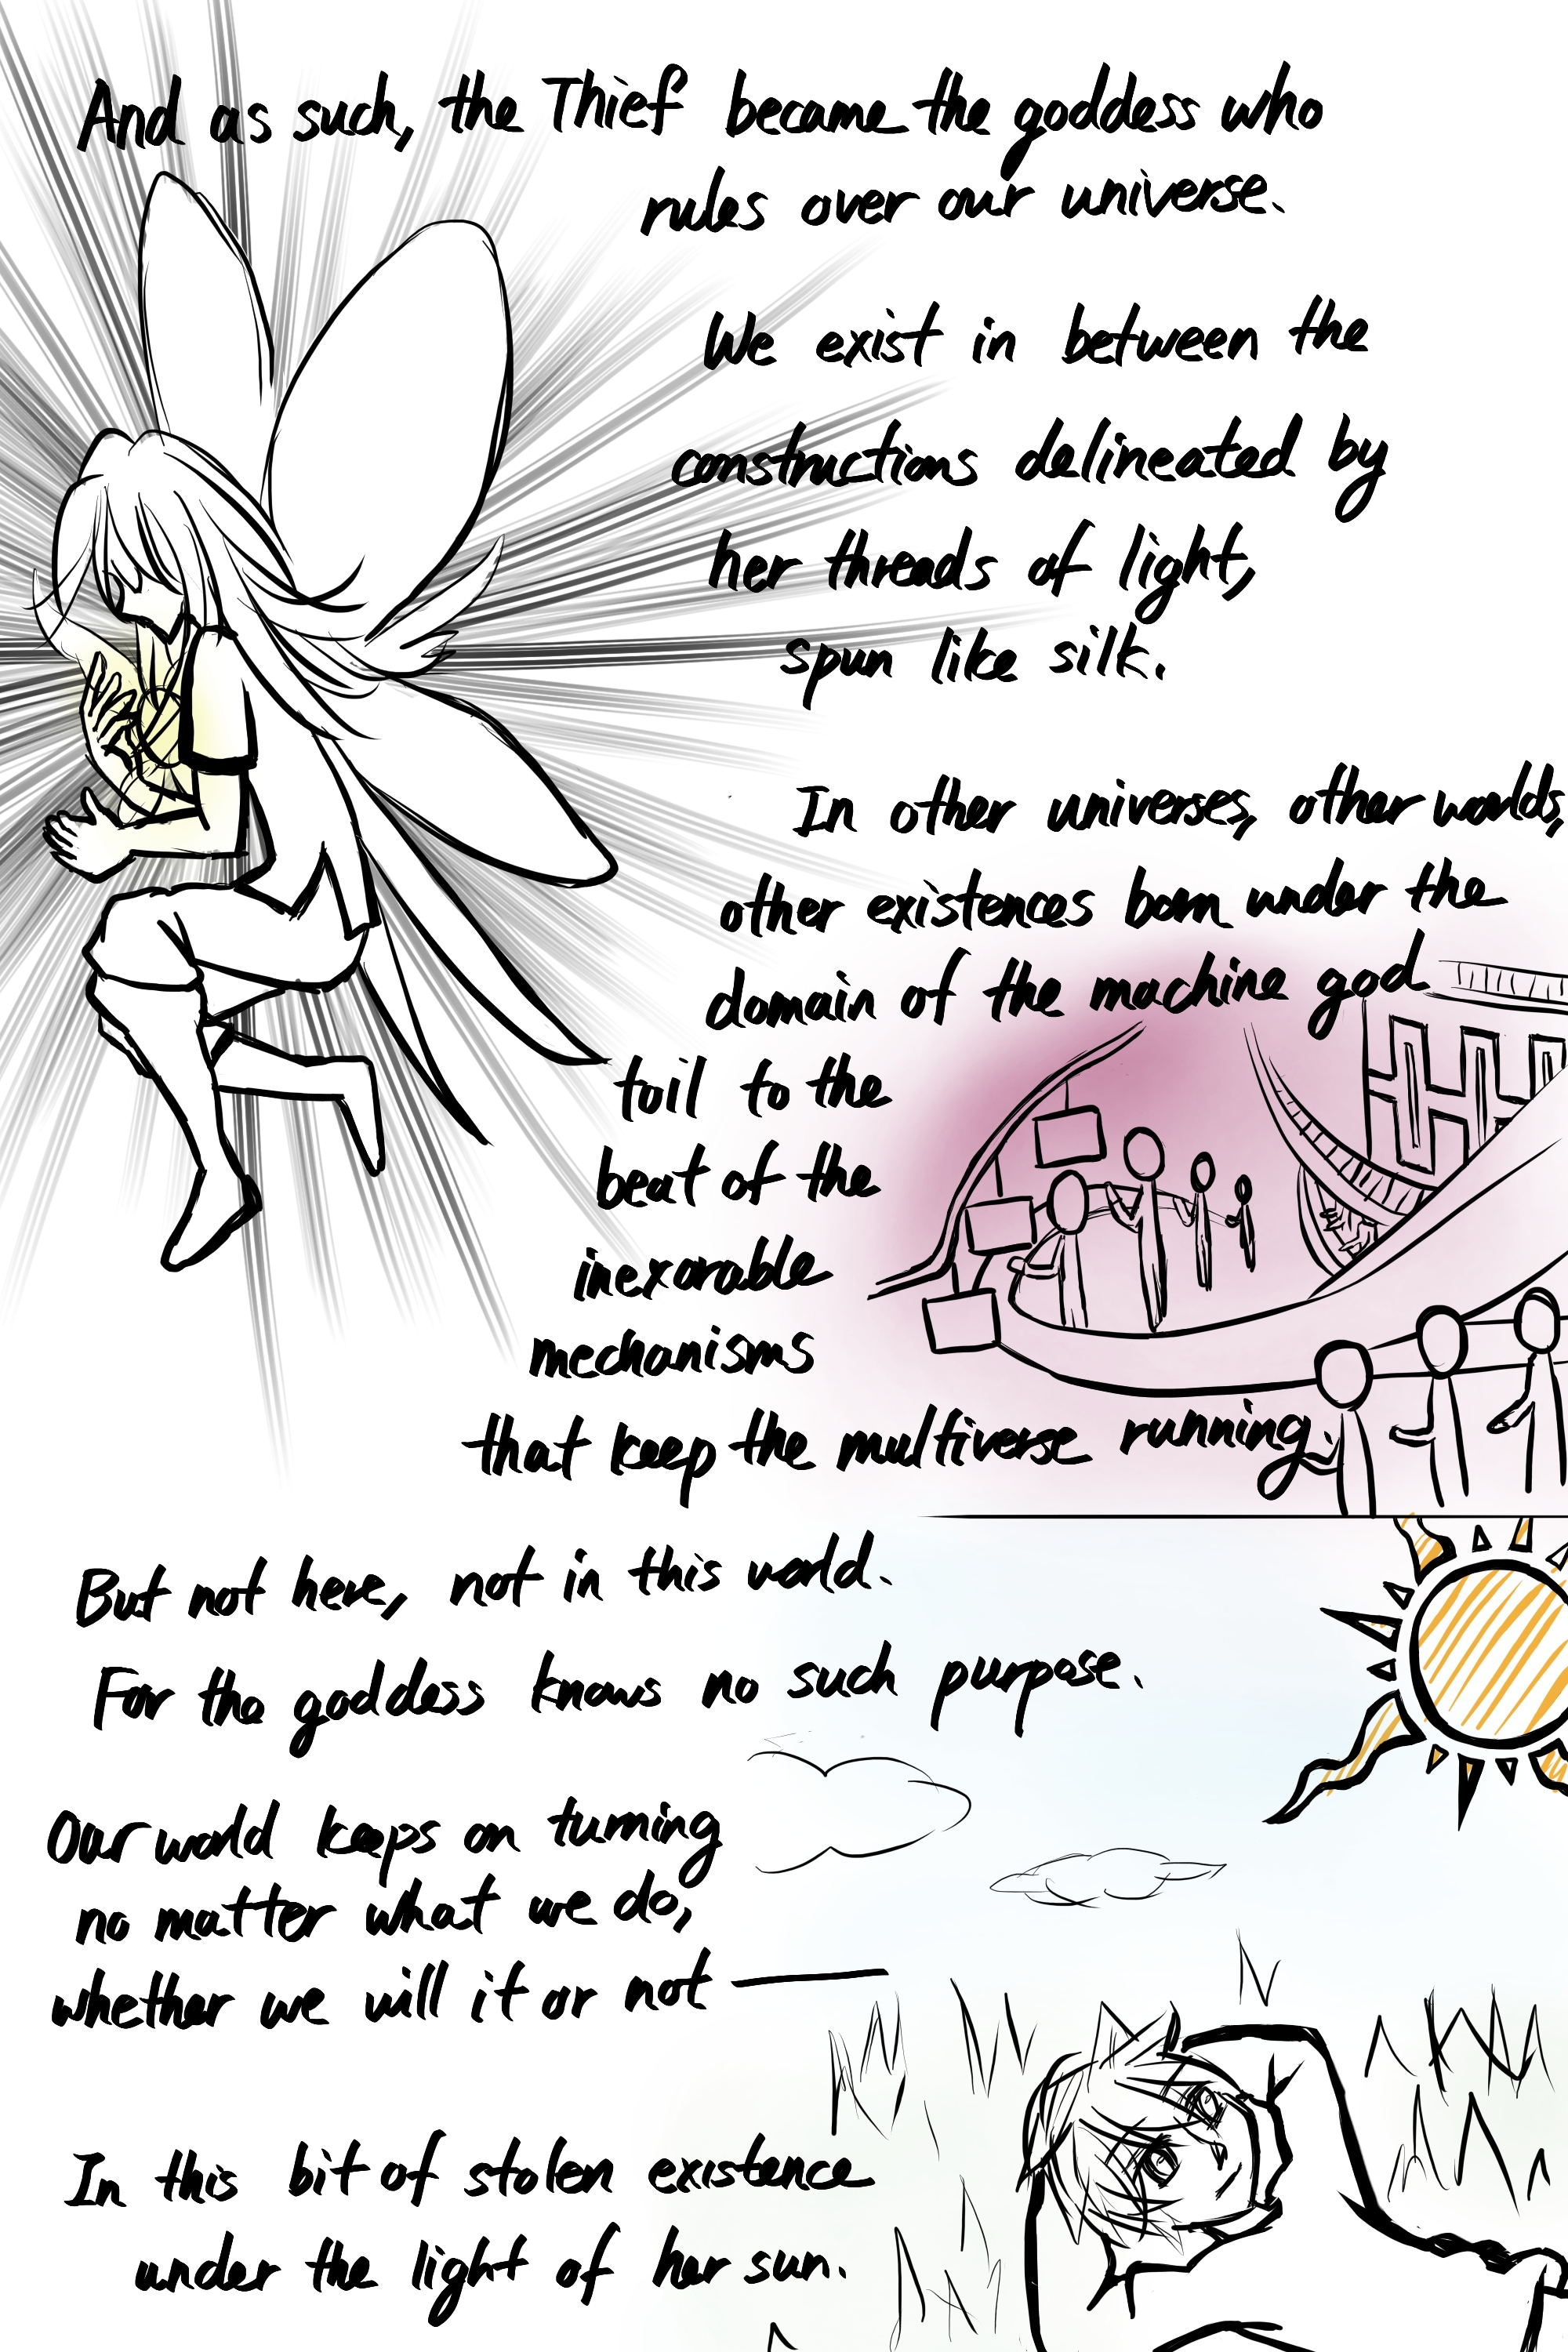 And as such, the Thief became the goddess who
rules over our universe.
We exist in between the
constructions delineated by
her threads of light,
spun like silk.
In other universes, other worlds,
other existences born under the
domain of the machine god
toil to the
beat of the
inexorable
mechanisms
that keep the multiverse running.
But not here, not in this world.
For the goddess knows no such purpose.
Our world keeps on turning
no matter what we do,
whether we will it or not —
In this bit of stolen existence
under the light of her sun.